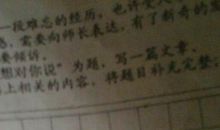 一段难忘的经历,也许
需要向师长表达,有了新奇的
要倾诉。
想对你说”为题,写一篇文章。
上相关的内容,将题目补充完整;